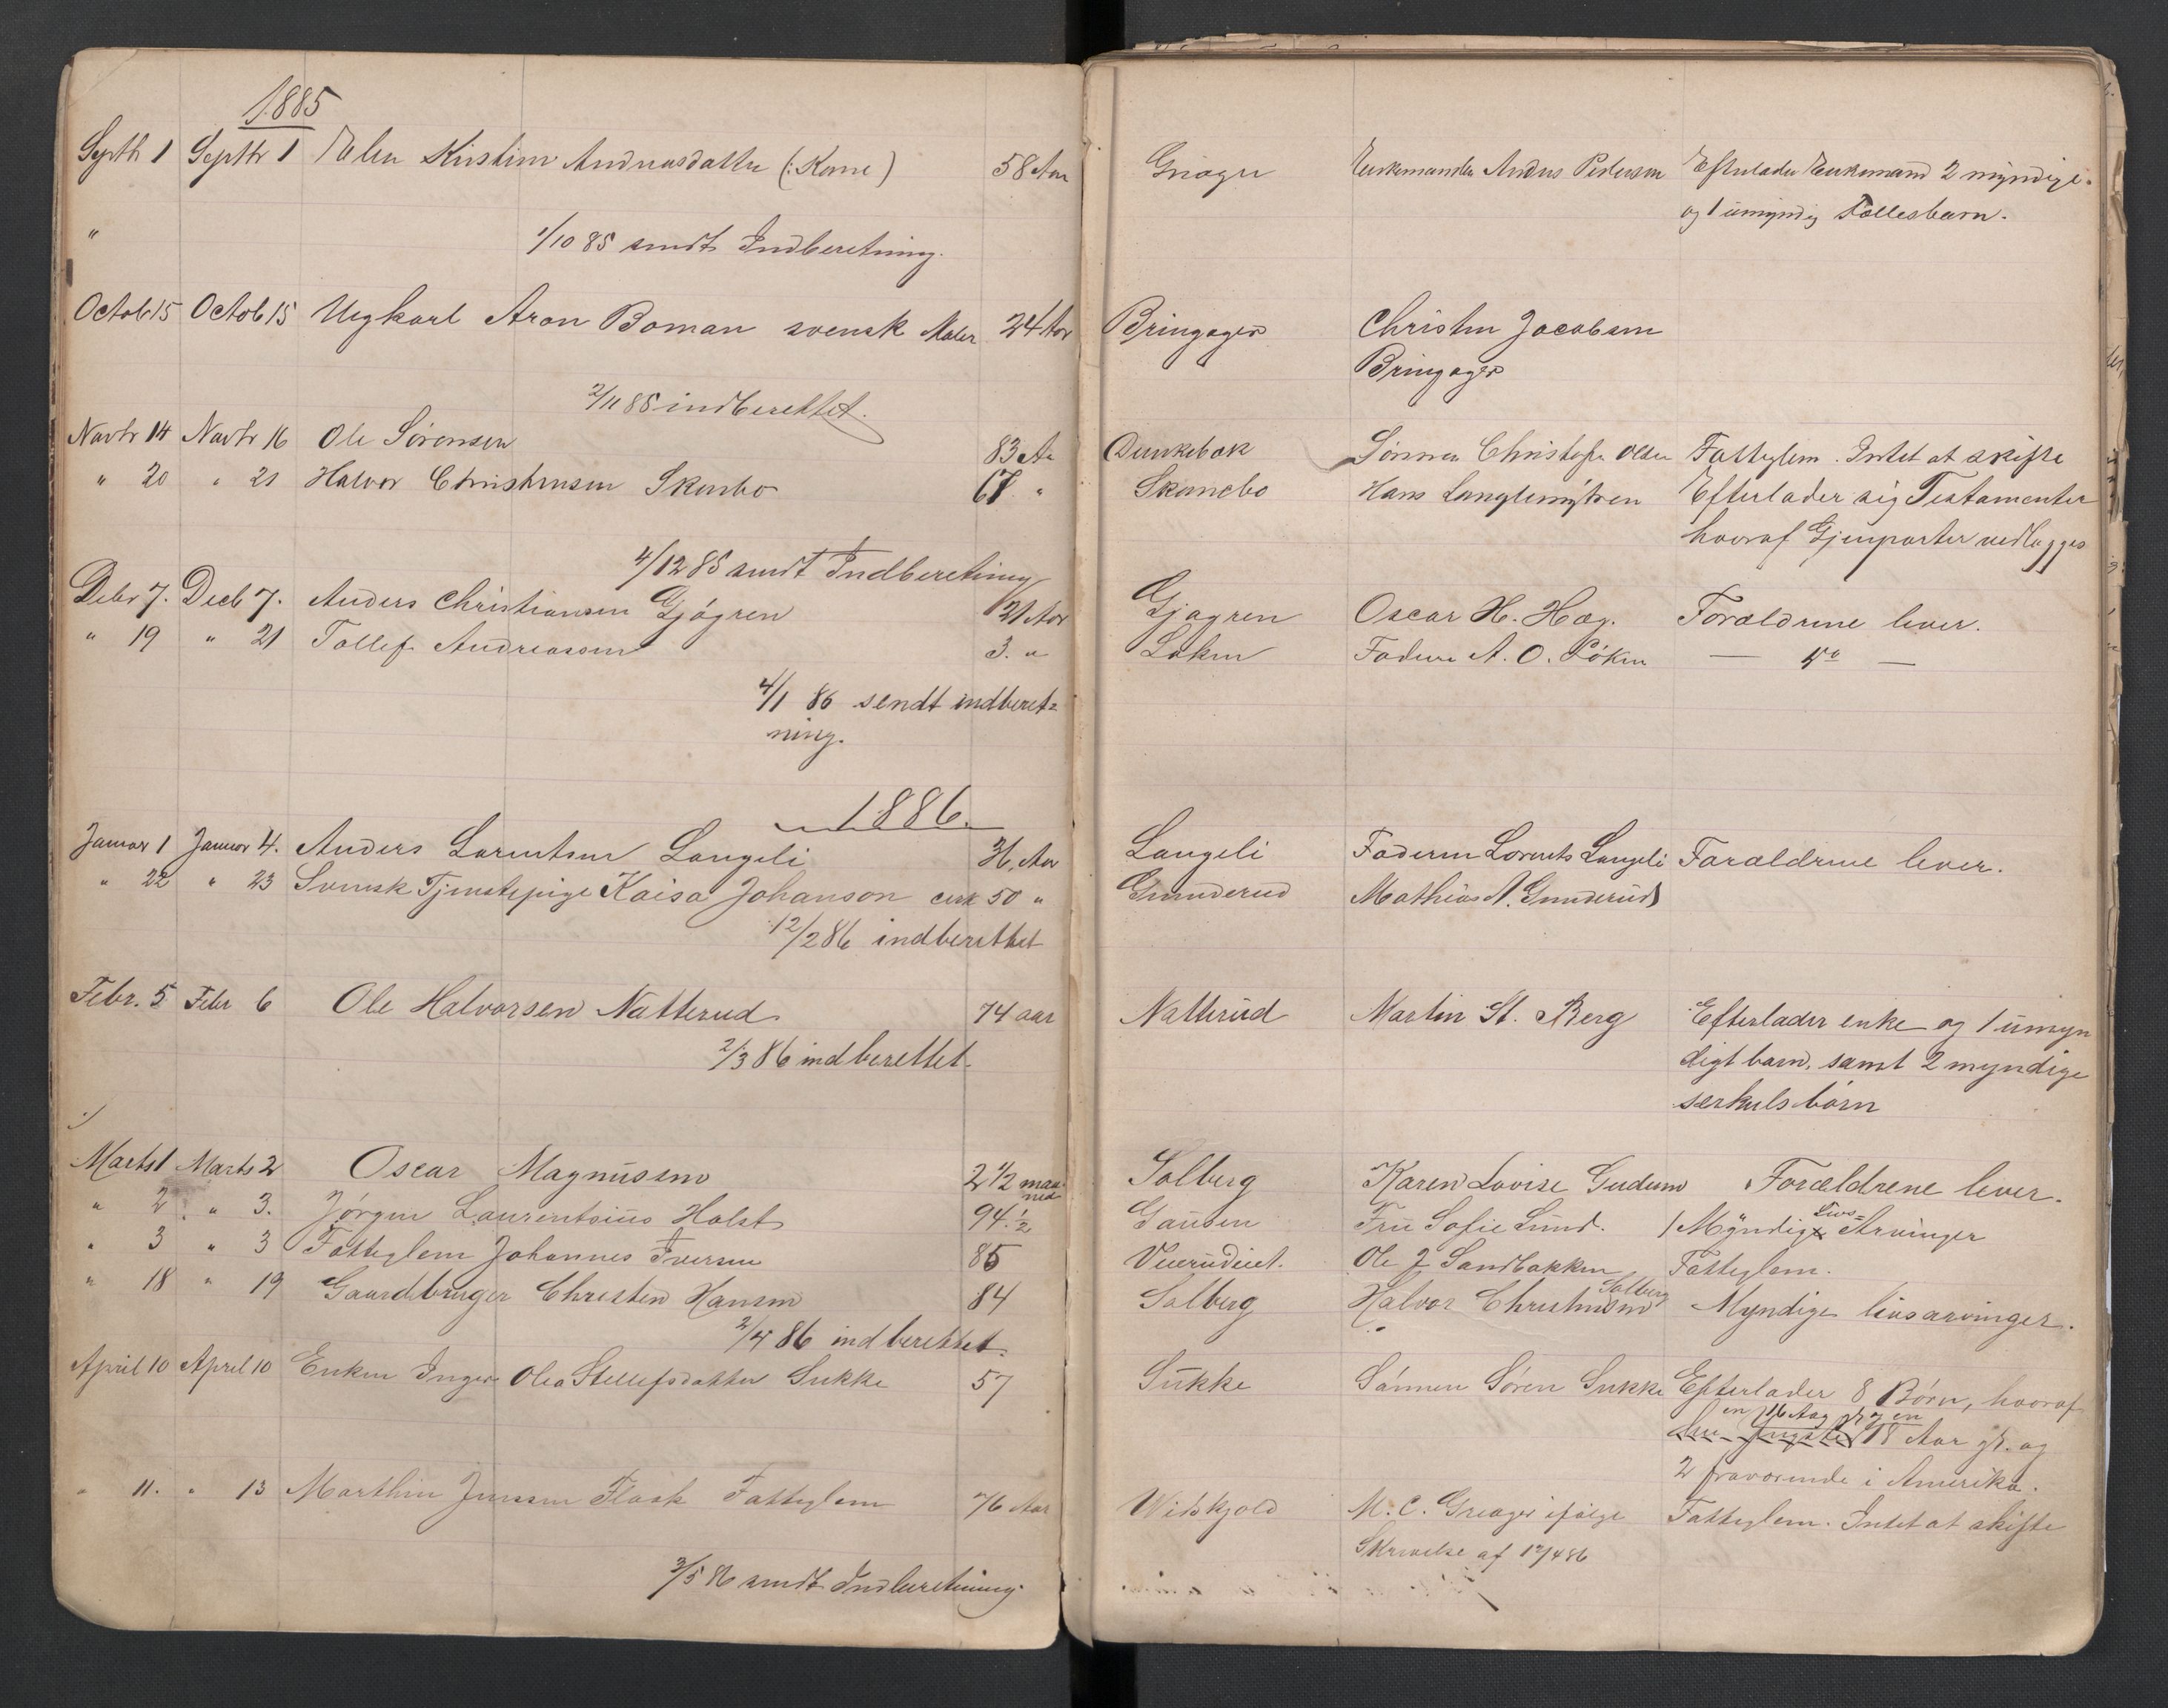 1885
Septbr 1 Septbr 1 Elen Kirstine Andreasdatter (: Kone) 58 Aar Enkemanden Anders Pedersen Efterlader Enkemand 2 myndige
og 1 umyndig Fællesbarn.
" 1/10 85 sendt Indberetning.
Octob 15 Octob 15 Ungkarl Aron Boman svensk Maler 24 Aar Bringager Christen Jacobsen
Bringager
2/11 85 indberettet.
Novbr 14 Novbr 16 Ole Sørensen 83 Aar Dunkebæk Sønnen Christofer Olsen Fattiglem. Intet at skifte
" 20 " 21 Halvor Christensen Skarebo 67 " Skarebo Hans Langlemyhren Efterlader sig Testamenter
hvoraf Gjenparter vedlægges
4/12 85 sendt Indberetning
Debr 7. Decb 7. Anders Christiansen Gjøgren 21 Aar Gjøgren Oscar H. Hæg. Forældrene lever.
" 19 " 21 Tollef Andreassen 3. " Løken Faderen A. O. Løken — do —
4/1 86 sendt indberet=
ning.
1886.
Januar 1 Januar 4. Anders Larentsen Langeli 36, Aar Langeli Faderen Lorents Langeli Forældrene lever.
" 22 " 23 Svensk Tjenestepige Kaisa Johanson cirk 50 " Gunderud Mathias A. Gunderud
12/2 86 indberettet
Febr. 5 Febr 6 Ole Halvorsen Natterud 74 aar Natterud Martin St. Berg Efterlader enke og 1 umyn
digt barn, samt 2 myndige
særkulsbørn
2/3 86 indberettet.
Marts 1 Marts 2 Oscar Magnussen 2 1/2 maa
ned Solberg Karen Lovise Gudem Forældrene lever.
" 2 " 3. Jørgen Laurentsius Holst 94 1/2 Gausen Fru Sofie Lund. 1 Myndig Livs= Arvinger
" 3 " 3 Fattiglem Johannes Iversen 85 Ole J Sandbakken Fattiglem.
" 18 " 19 Gaardbruger Christen Hansen 84 Solberg Halvor Christensen Solberg Myndige livsarvinger.
2/4 86 indberettet.
April 10 April 10 Enken Inger Olea Stellefsdatter Sukke 57 Sukke Sønnen Søren Sukke Efterlader 8 Børn, hvoraf
en 16 Aar gl. og en
den yngste 18 Aar gl. og
2 fraværende i Amerika.
" 11. " 13 Marthin Jenssen Flaak Fattiglem 76 Aar Widskjold M. C. Greager ifølge Fattiglem. Intet at skifte
Skrivelse af 12/4 86
3/5 86 sendt Indberetning.